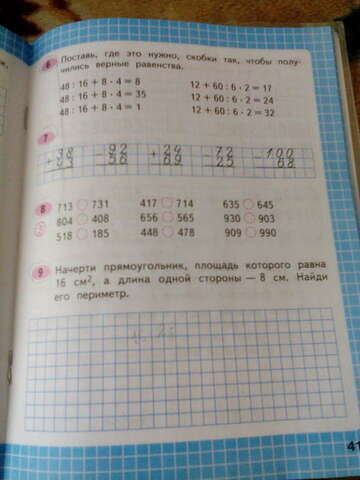 6 Поставь, где это нужно, скобки так, чтобы полу-
чились верные равенства.
48 : 16 + 8 · 4 = 8 12 + 60 : 6 · 2 = 17
48 : 16 + 8 · 4 = 35 12 + 60 : 6 · 2 = 24
48 : 16 + 8 · 4 = 1 12 + 60 : 6 · 2 = 32
7
+ 38 − 92 + 24 − 72 − 100
43 56 69 25 68
8 713 731 417 714 635 645
804 408 656 565 930 903
518 185 448 478 909 990
9 Начерти прямоугольник, площадь которого равна
16 см², а длина одной стороны — 8 см. Найди
его периметр.
41